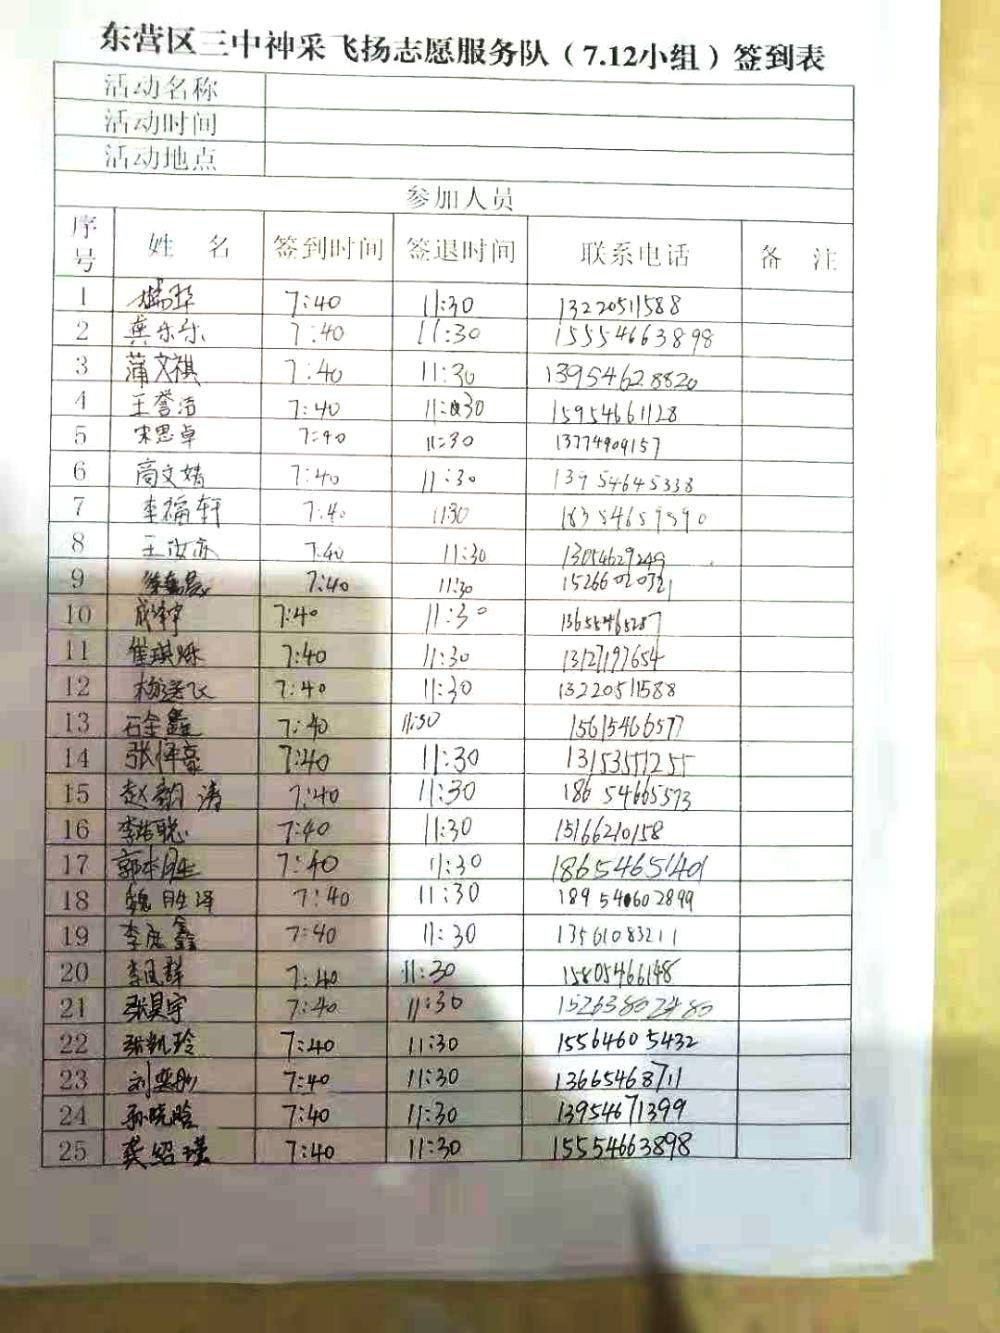 东营区三中神采飞扬志愿服务队（7.12小组）签到表
活动名称
活动时间
活动地点
参加人员
序号 姓 名 签到时间 签退时间 联系电话 备 注
1 7:40 11:30 13220511588
2 龚乐乐 7:40 11:30 15554663898
3 蒲文祺 7:40 11:30 13954628820
4 王誉洁 7:40 11:30 15954661128
5 宋思卓 7:40 11:30 13774909157
6 高文婧 7:40 11:30 13954645338
7 李福轩 7:40 11:30 18354659590
8 7:40 11:30 13054629249
9 7:40 11:30 15266020321
10 7:40 11:30 13655465287
11 崔琪烁 7:40 11:30 13127197654
12 7:40 11:30 13220511588
13 石金鑫 7:40 11:30 15615466577
14 7:40 11:30 13153551255
15 赵韵涛 7:40 11:30 18654665573
16 李浩聪 7:40 11:30 15166210158
17 7:40 11:30 18654651401
18 魏胜泽 7:40 11:30 18954602899
19 7:40 11:30 13561083211
20 7:40 11:30 15805466148
21 张昊宇 7:40 11:30 15263802480
22 张凯玲 7:40 11:30 15564605432
23 7:40 11:30 13665468711
24 孙晓晗 7:40 11:30 13954671399
25 龚绍瑾 7:40 11:30 15554663898